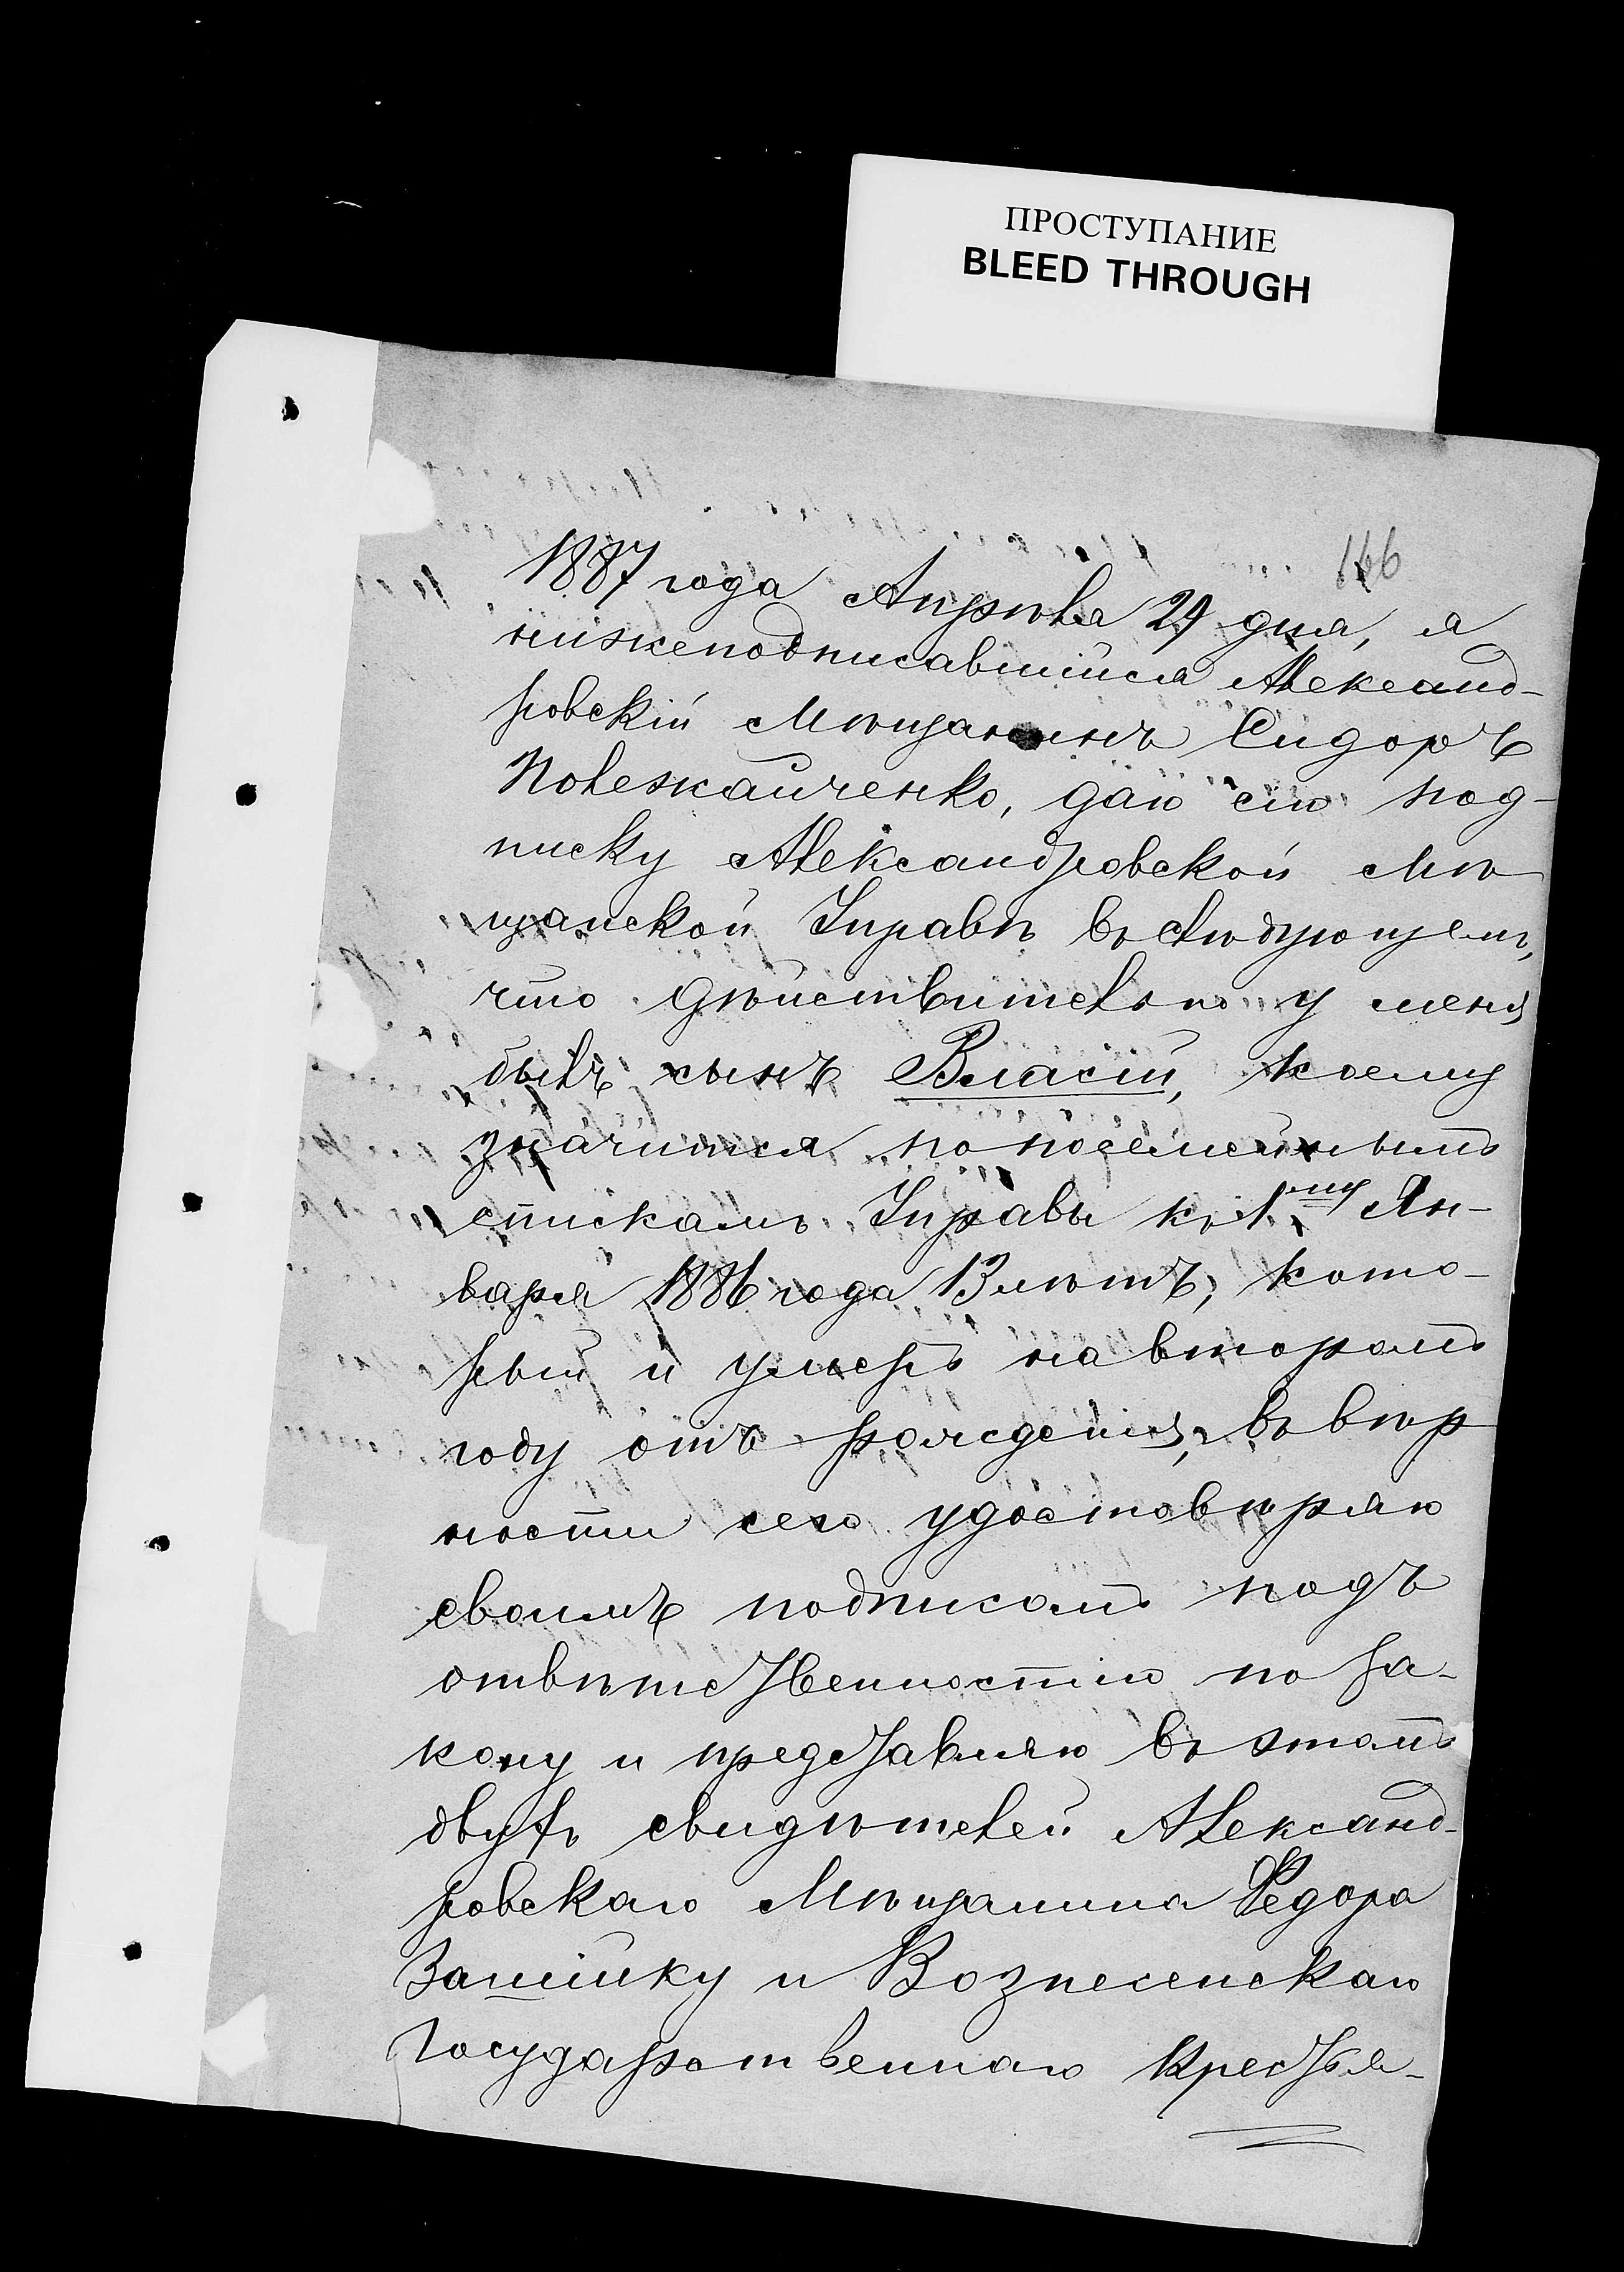 ПРОСТУПАНИЕ
BLEED THROUGH
166
1887 года Апрѣля 29 дня, я
нижеподписавшийся Александ-
ровскій Мѣщанинъ Сидоръ
Полежайченко, даю сію под-
писку Александровской Мѣ
щанской Управѣ въ слѣдующемъ,
что дѣйствительно у меня
былъ сынъ Власій, коему
значится по посемейнымъ
спискамъ Управы къ 1му Ян-
варя 1886 года 13 лѣтъ, кото-
рый и умеръ на второмъ
году отъ рожденія, въ вѣр
ности сего удостовѣряю
своимъ подписомъ подъ
отвѣтственностію по за-
кону и представляю въ этомъ
двухъ свидѣтелей Александ-
ровскаго Мѣщанина Федора
Зашійку и Вознесенскаго
Государственнаго Крестья-